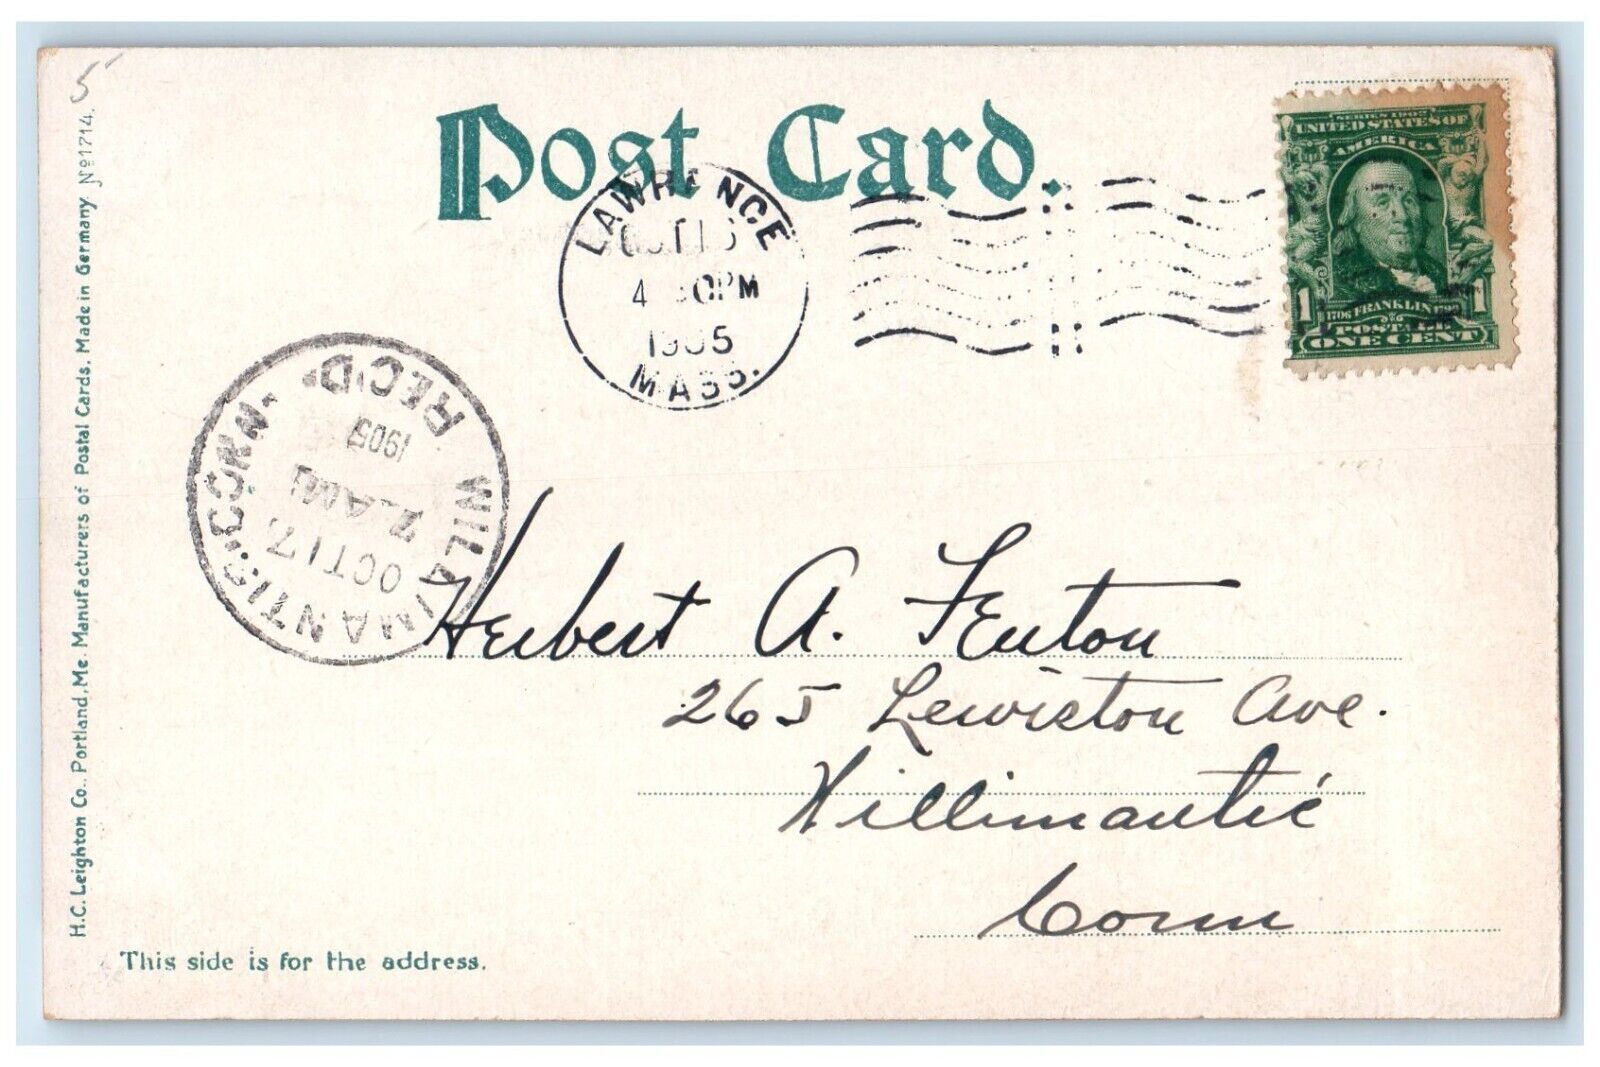 5
Post Card.
SERIES 1902
UNITED STATES OF
AMERICA
1 1
1706 FRANKLIN
POSTAGE
ONE CENT
LAWRENCE
OCT 15
4 30PM
1905
MASS.
WILLIMANTIC. CONN.
OCT 17
7 AM
1905
REC'D
Herbert A. Fenton
265 Lewiston Ave.
Willimantic
Conn
This side is for the address.
H.C. Leighton Co., Portland, Me. Manufacturers of Postal Cards, Made in Germany. No 1714.